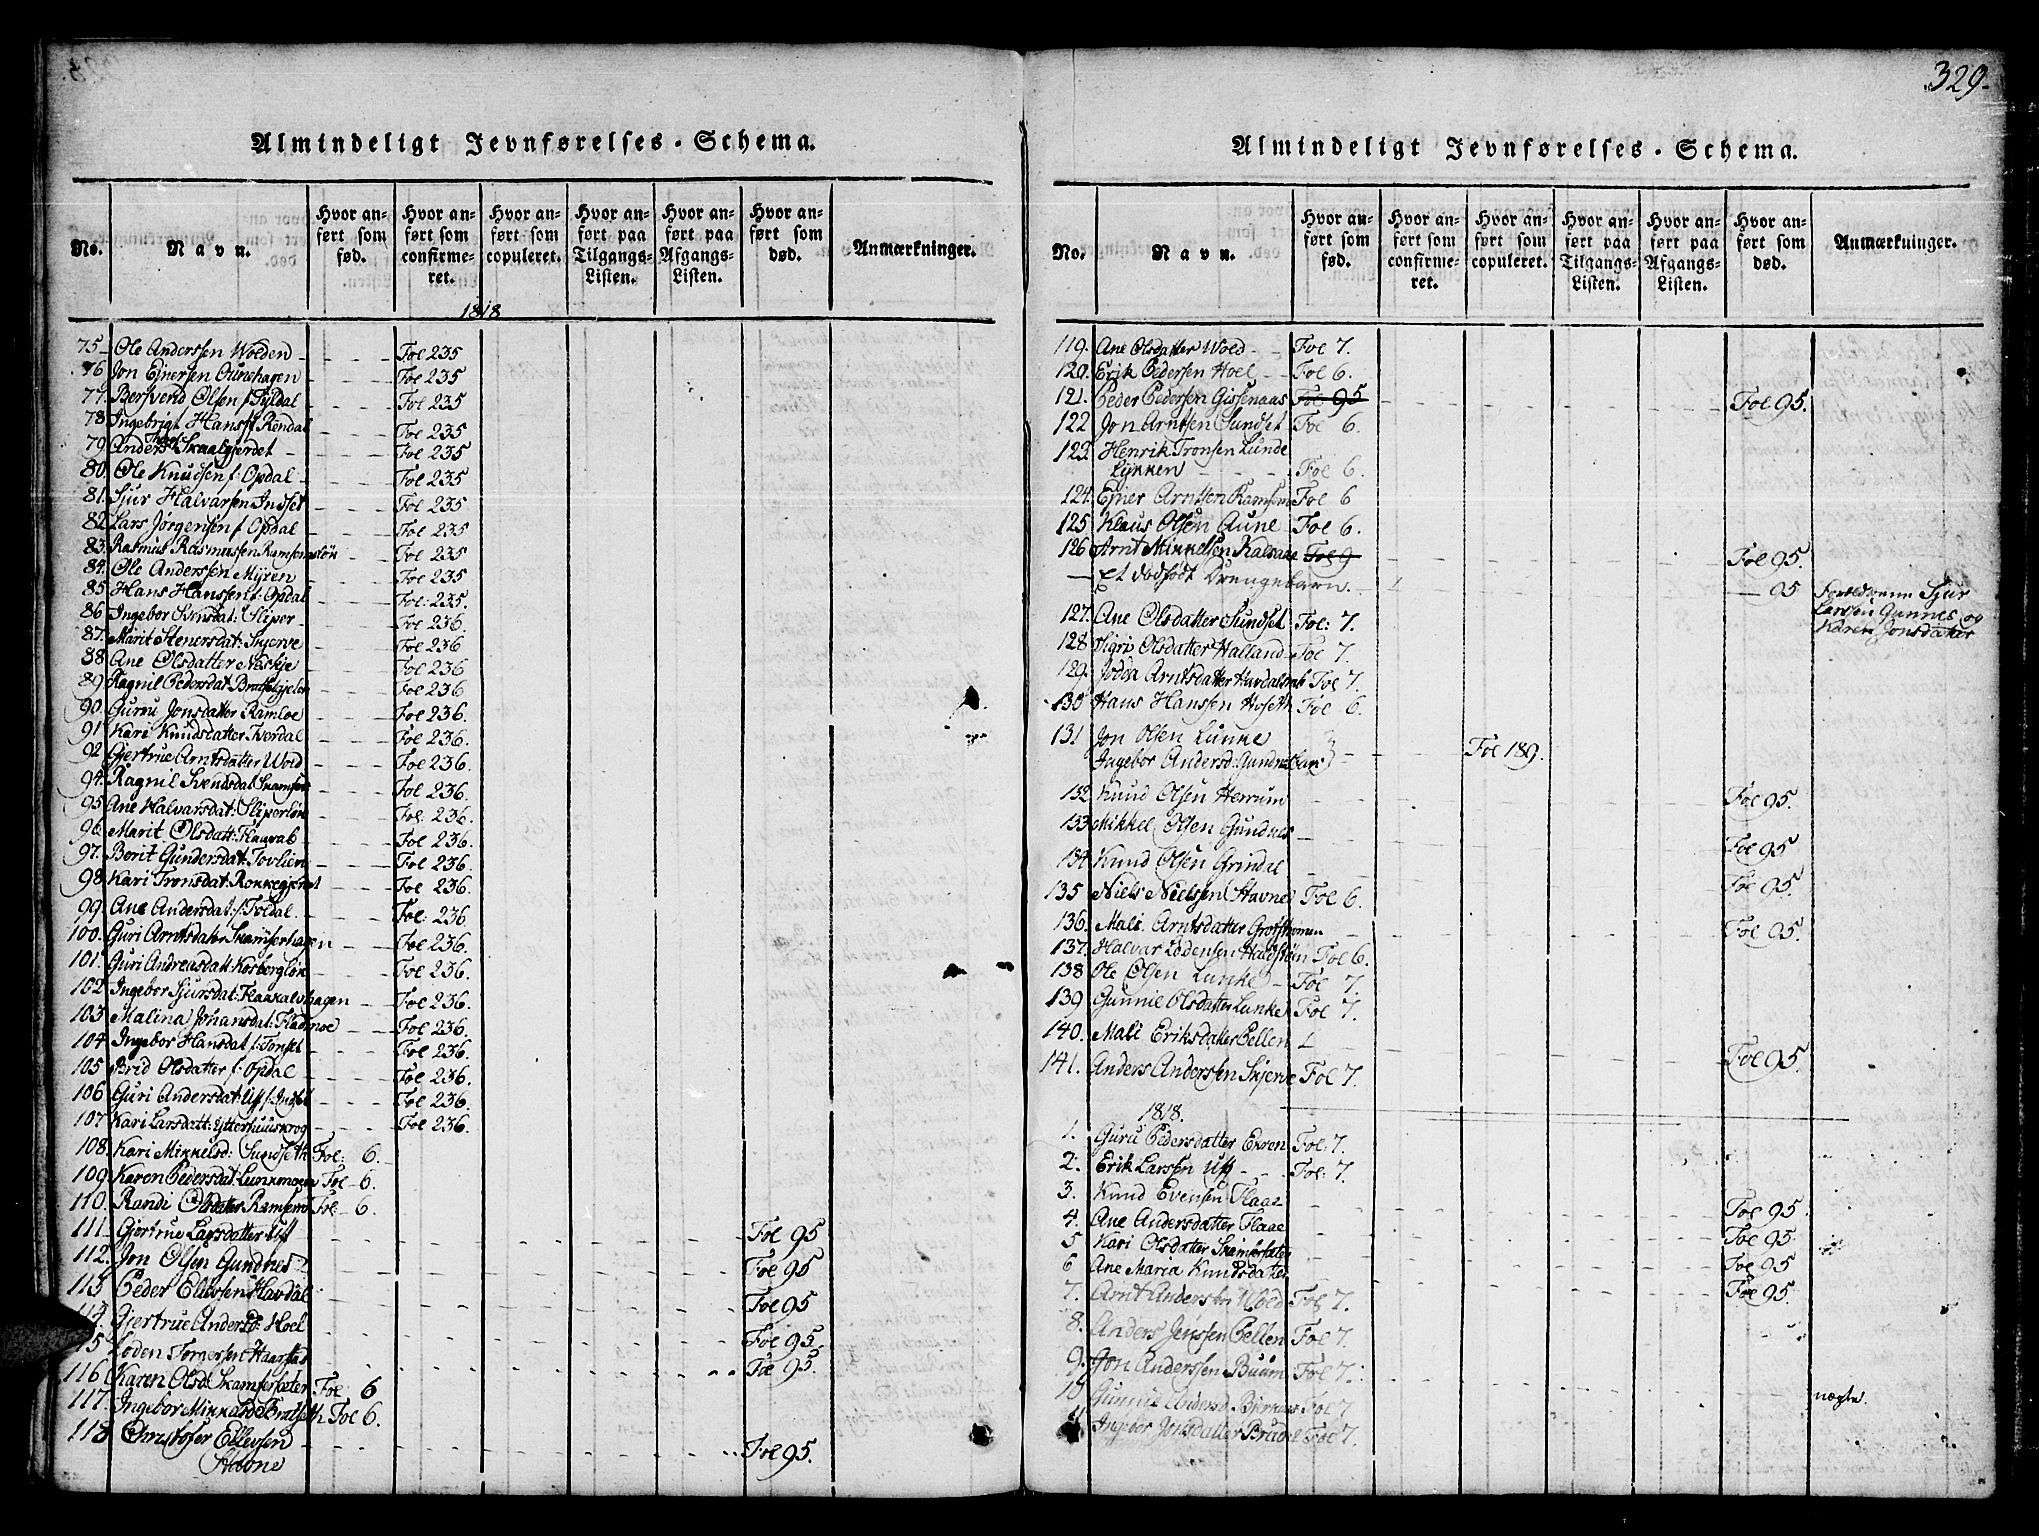 329.
Almindeligt Jevnførelses-Schema.
No.
Navn.
Hvor anført som fød.
Hvor anført som confirmeret.
Hvor anført som copuleret.
Hvor anført paa Tilgangs-Listen.
Hvor anført paa Afgangs-Listen.
Hvor anført som død.
Anmærkninger.
1818
75 Ole Anderssen Wolden - Foe 235
76 Jon Ejnersen - Foe 235
77. Bersvend Olsen f Tyldal - Foe 235
78 Ingebrigt Hanss f Rendal - Foe 235
79 Anders Skaalgjerdet - Foe 235
80. Ole Knudsen f: Opdal - Foe 235
81. Sjur Halvarsen Indset - Foe 235
82 Lars Jørgensen f Opdal - Foe 235
83. Rasmus Rasmussen - Foe 235
84. Ole Anderssen Myren - Foe 235
85 Hans Hanssen f: Opdal - Foe: 235.
86 Ingebor Svensdat: Sliper - Foe 236
87. Marit Stenersdat: Skjerve - Foe 236
88 Ane Olsdatter Næskje - Foe 236
89 Ragnil Pedersdat - Foe 236
90. Guru Jonsdatter Ramloe - Foe 236.
91 Kari Knudsdatter Sverdal - Foe 236.
92 Gjertrue Arntsdatter Wold - Foe 236.
94. Ragnil Svendsdat - Foe 236.
95 Ane Halvarsdat: Sliperløn - Foe 236.
96. Marit Olsdatt: - Foe 236.
97. Berit Gundersdat: - Foe 236.
98. Kari Tronsdat: - Foe 236.
99. Ane Andersdat: f: Foldal. - Foe: 236
100. Guri Arntsdatter - Foe 236.
101. Guri Andreasdatt - Foe 236.
102. Ingebor Sjursdat: - Foe 236.
103 Malina Johansdat: - Foe 236.
104. Ingebor Hansdat f: Tønset - Foe 236.
105 Brid Olsdatter f: Opdal - Foe 236.
106 Guri Andersdat: - Foe 236.
107 Kari Larsdatt: Ytterhuuskrog - Foe 236.
108. Kari Mikkelsd: Sundseth Foe: 6.
109. Karen Pedersdat: Foe 6.
110. Randi Olsdatter Ramsem Foe 6.
111. Gjertrue Larsdatter Uff - Foe 95
112. Jon Olsen Gundnes - Foe 95
113 Peder Ellessen Havdal - Foe 95
114. Gjertrue Andersd: Hoel - Foe 95.
115 Loden Torgersen Haarstad - Foe 95.
116 Karen Olsd Foe 6
117. Ingebor Mikkelsd Foe 6.
118 Christofer Ellevsen Havne - Foe 95.
Almindeligt Jevnførelses-Schema.
No.
Navn.
Hvor anført som fød.
Hvor anført som confirmeret.
Hvor anført som copuleret.
Hvor anført paa Tilgangs-Listen.
Hvor anført paa Afgangs-Listen.
Hvor anført som død.
Anmærkninger.
119. Ane Olsdatter Wold - Foe 7.
120. Erik Pedersen Hoel - Foe 6.
121. Peder Pedersen Gissenaas Foe 95 - Foe 95.
122 Jon Arntsen Sundset Foe 6.
123. Henrik Tronsen Lunde
Lykken - Foe 6.
124. Ejner Arntsen Ramsem Foe 6
125 Klaus Olsen Aune Foe 6.
126 Arnt Mikkelsen Foe 9 - Foe 95.
— et dødfødt Drengebarn. - — 95 Forældrene Sjur
Larsen Gunnes og
Karen Jonsdatter
127. Ane Olsdatter Sundset Foe: 7.
128 Sigri Olsdatter Halland Foe 7.
129. Arntsdatter Foe 7.
130 Hans Hanssen Hoseth Foe 6.
131 Jon Olsen Lunke
Ingebor Andersd: - Foe 189.
132 Knud Olsen Herrum - Foe 95.
133 Mikkel Olsen Gundnes - Foe 95
134 Knud Olsen Grindal - Foe 95
135 Niels Nielssen Havne Foe 6.
136. Mali Arntsdatter - Foe 95.
137. Halvar Lodensen Foe 6.
138 Ole Olsen Lunke - Foe 7.
139 Gunnil Olsdatter Lunke Foe 7.
140. Mali Eriksdatter Pellen - Foe 95
141. Anders Anderssen Skjerve Foe 7.
1818.
1. Guru Pedersdatter Ekren Foe: 7.
2. Erik Larsen Uff - Foe: 7.
3. Knud Evensen Flaae - Foe 95.
4. Ane Andersdatter Flaae - Foe 95.
5 Kari Olsdatter - Foe 95
6 Ane Maria Knudsdatter - Foe 95.
7. Arnt Anderssen Wold Foe 7.
8. Anders Jenssen Pellen Foe 7.
9. Jon Anderssen Buum Foe 7.
10 Gunnil Andersd Foe 7 nægte.
11 Ingebor Jonsdatter Foe 7.